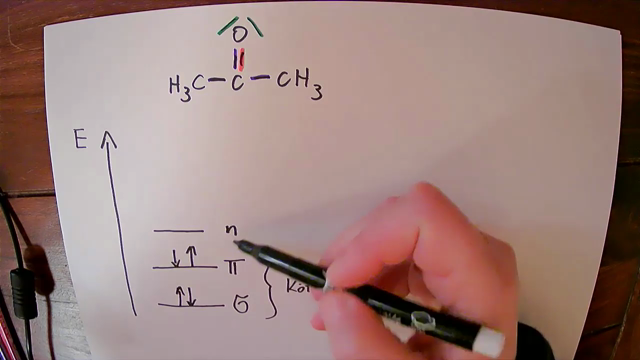 O
H₃C – C – CH₃
E
n
π
σ